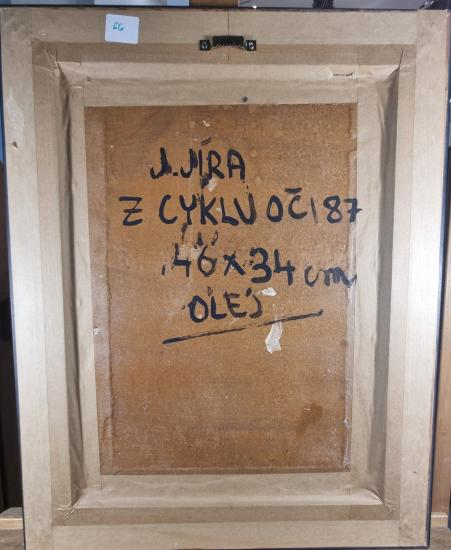 66
J. JÍRA
Z CYKLU OČI 87
46 x 34 cm
OLEJ